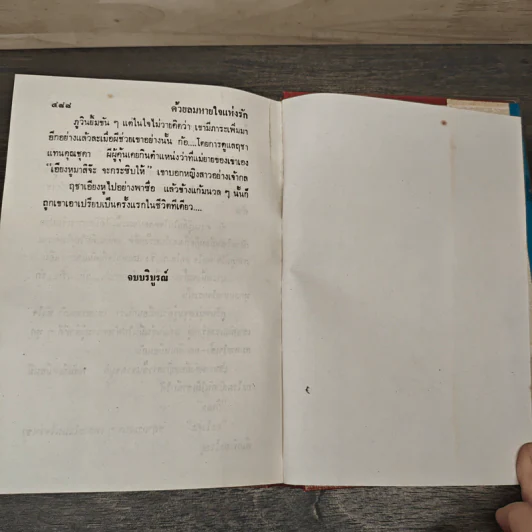 ๔๘๘ ด้วยลมหายใจแห่งรัก
ภูวินยิ้มขัน ๆ แต่ในใจไม่วายคิดว่า เขามีภาระเพิ่มมา
อีกอย่างแล้วละเมื่อผีช่วยเขาอย่างนั้น ก้อ....โดยการดูแลฤชา
แทนคุณชุดา ผีผู้คุ้นเคยกินตำแหน่งว่าที่แม่ยายของเขาเอง
"เอียงหูมาสิจ๊ะ จะกระซิบให้" เขาบอกหญิงสาวอย่างเจ้ากล
ฤชาเอียงหูไปอย่างพาซื่อ แล้วข้างแก้มนวล ๆ นั้นก็
ถูกเขาเอาเปรียบเป็นครั้งแรกในชีวิตทีเดียว....
จบบริบูรณ์